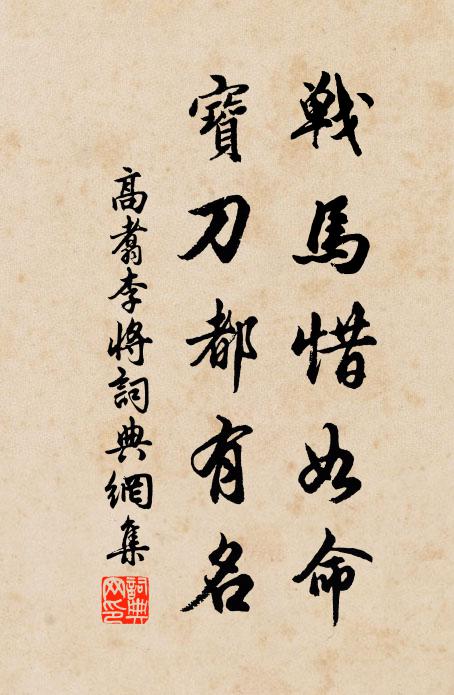 戰馬惜如命
寶刀都有名
高翥李將詞典網集
詞典
網印